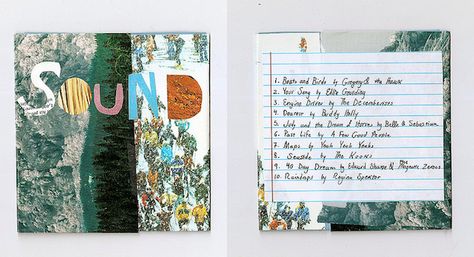 SOUND
1. Boats and Birds by Gregory & the Hawk
2. Your Song by Ellie Goulding
3. Engine Driver by The Decemberists
4. Dearest by Buddy Holly
5. Judy and the Dream of Horses by Belle & Sebastian
6. Past Life by A Few Good People
7. Maps by Yeah Yeah Yeahs
8. Seaside by The Kooks
9. 40 Day Dream by Edward Sharpe & The Magnetic Zeroes
10. Raindrops by Regina Spektor